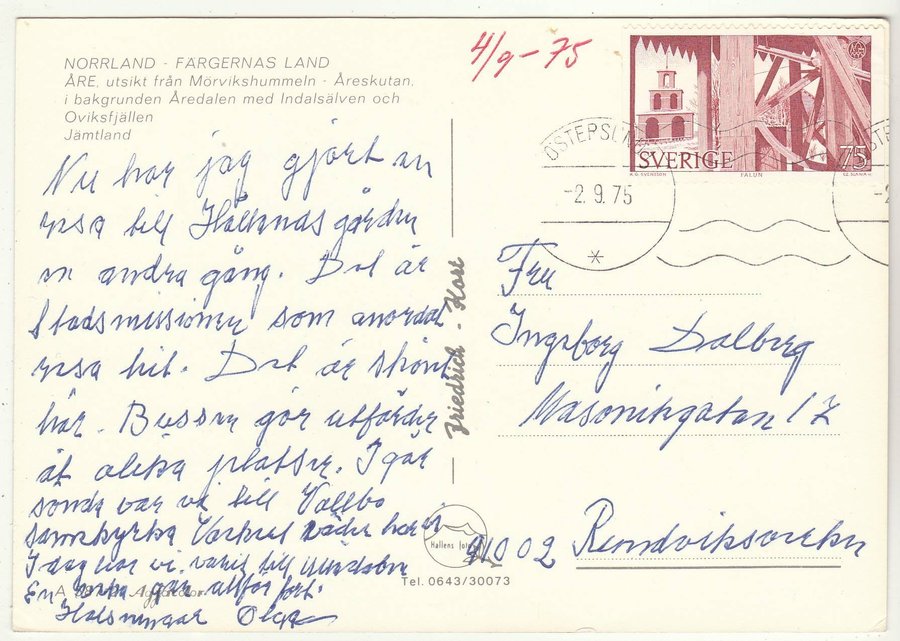 NORRLAND · FÄRGERNAS LAND
ÅRE, utsikt från Mörvikshummeln · Åreskutan,
i bakgrunden Åredalen med Indalsälven och
Oviksfjällen
Jämtland
4/9-75
SVERIGE 75
FALUN
-2.9.75
Nu har jag gjort en
resa till Hållandsgården
en andra gång. Det är
Stadsmissionen som anordar
resa hit. Det är skönt
här. Bussen gör utfärder
åt olika platser. Igår
sönda var vi till Vallbo
samekyrka Vackert väder har vi
I dag har vi varit till
En går allför fort.
Hälsningar Olga
Friedrich - Kort
Hallens foto
Tel. 0643/30073
Fru
Ingeborg Dalberg
Masonitgatan 17
91002 Rundviksverken